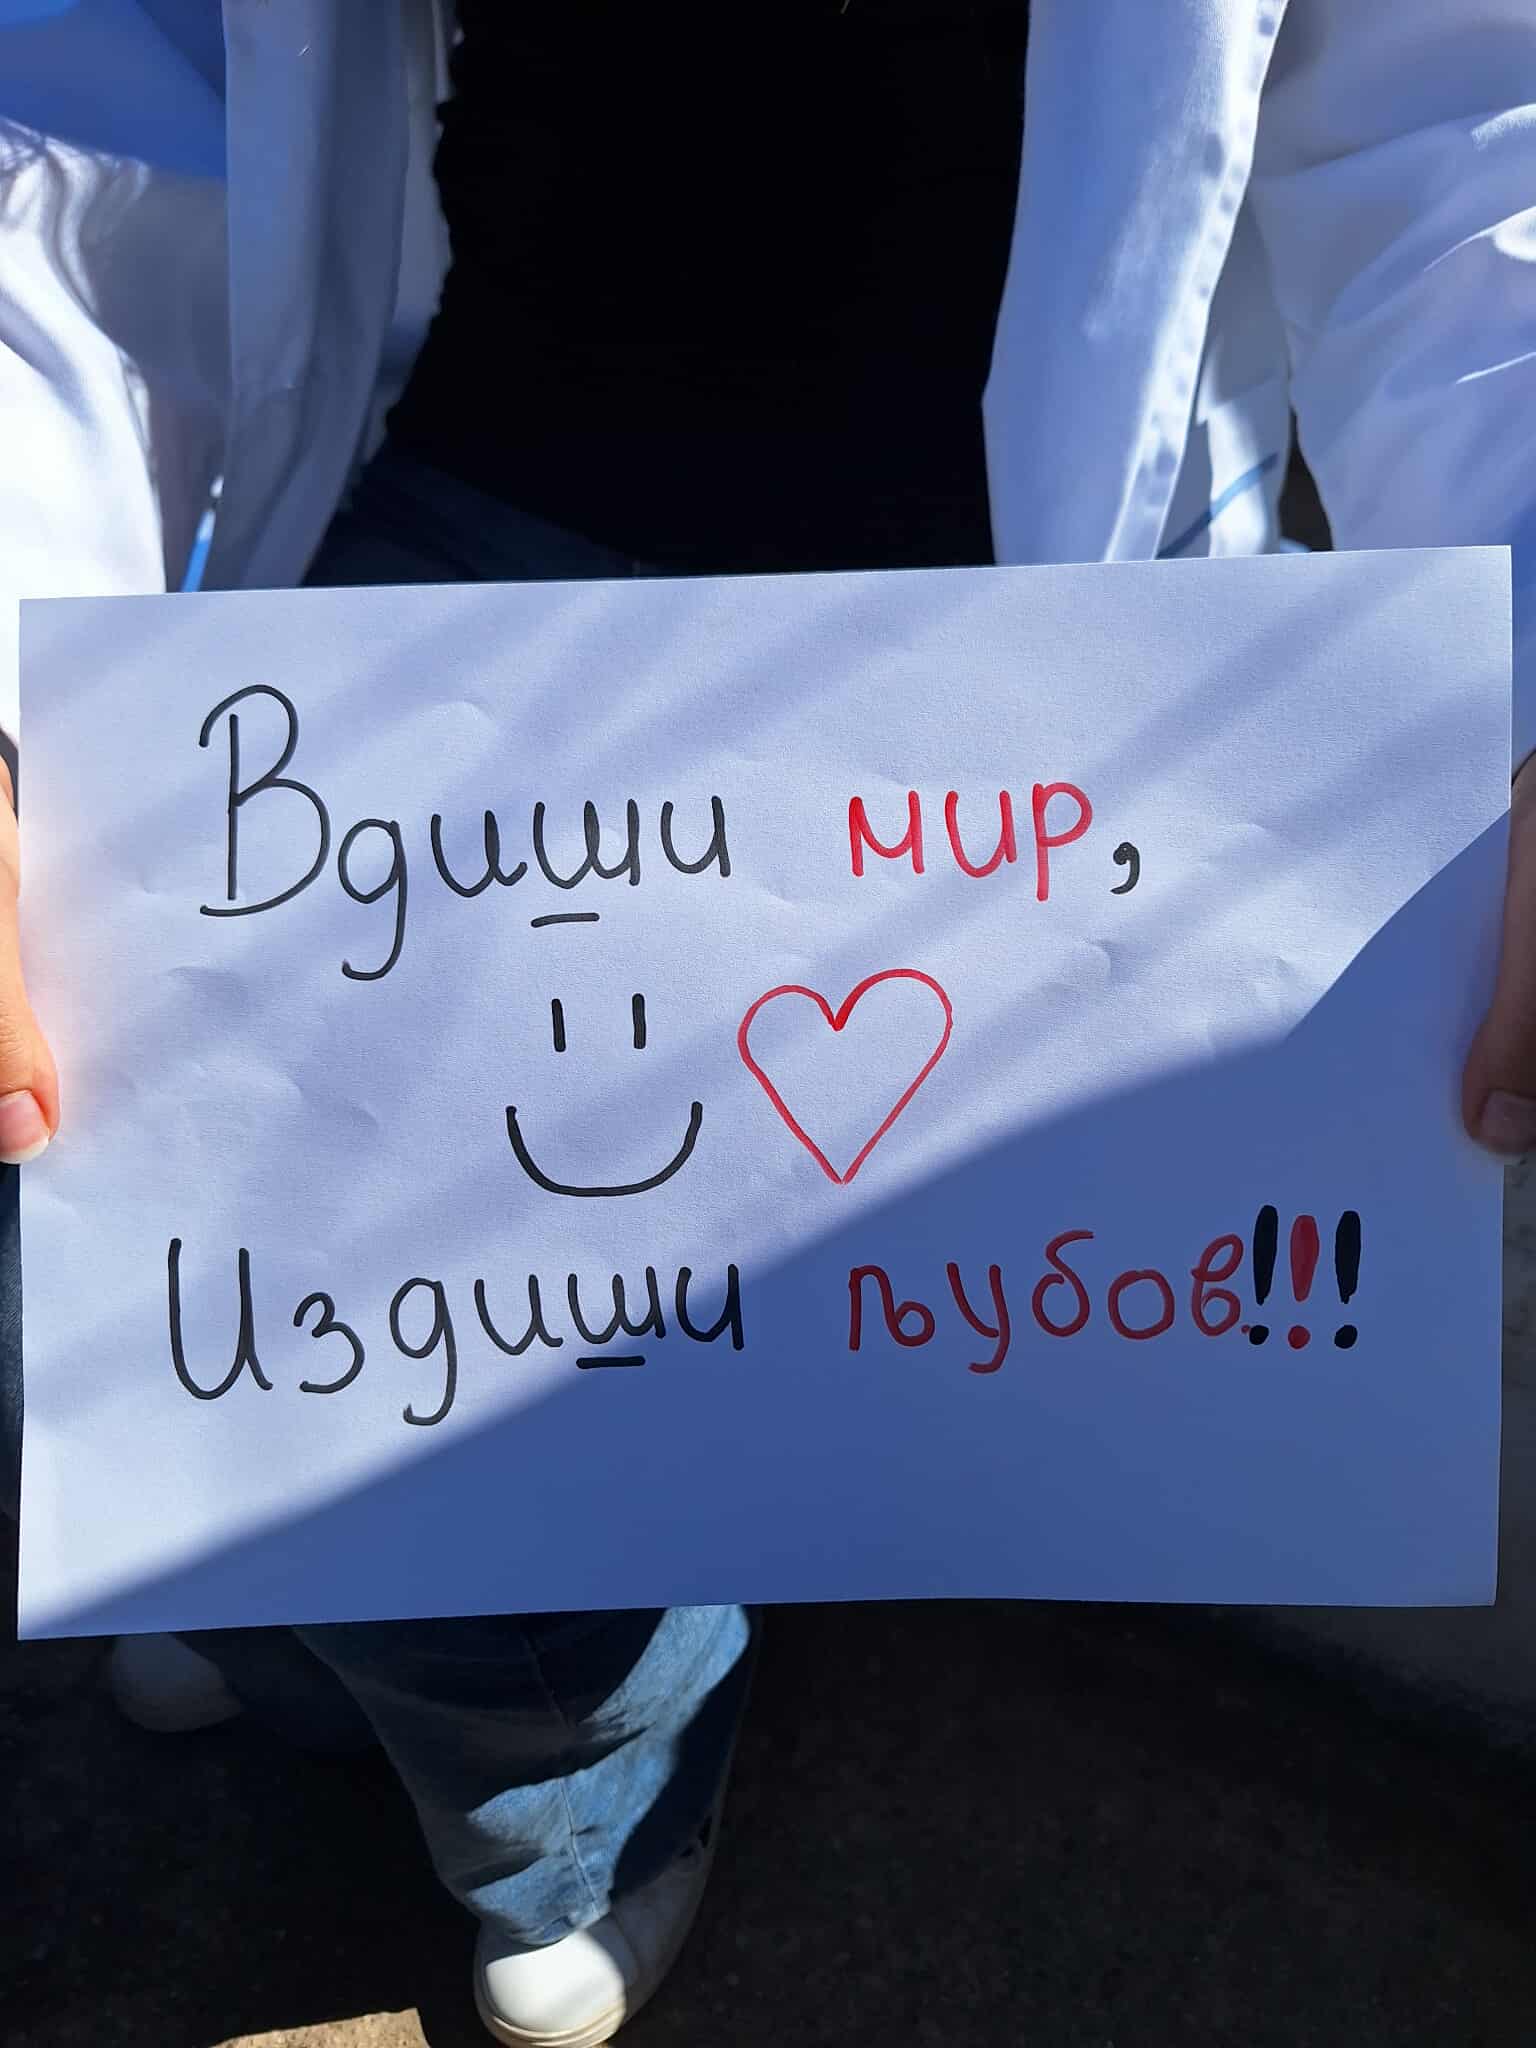 Вдиши мир,
Издиши љубов!!!